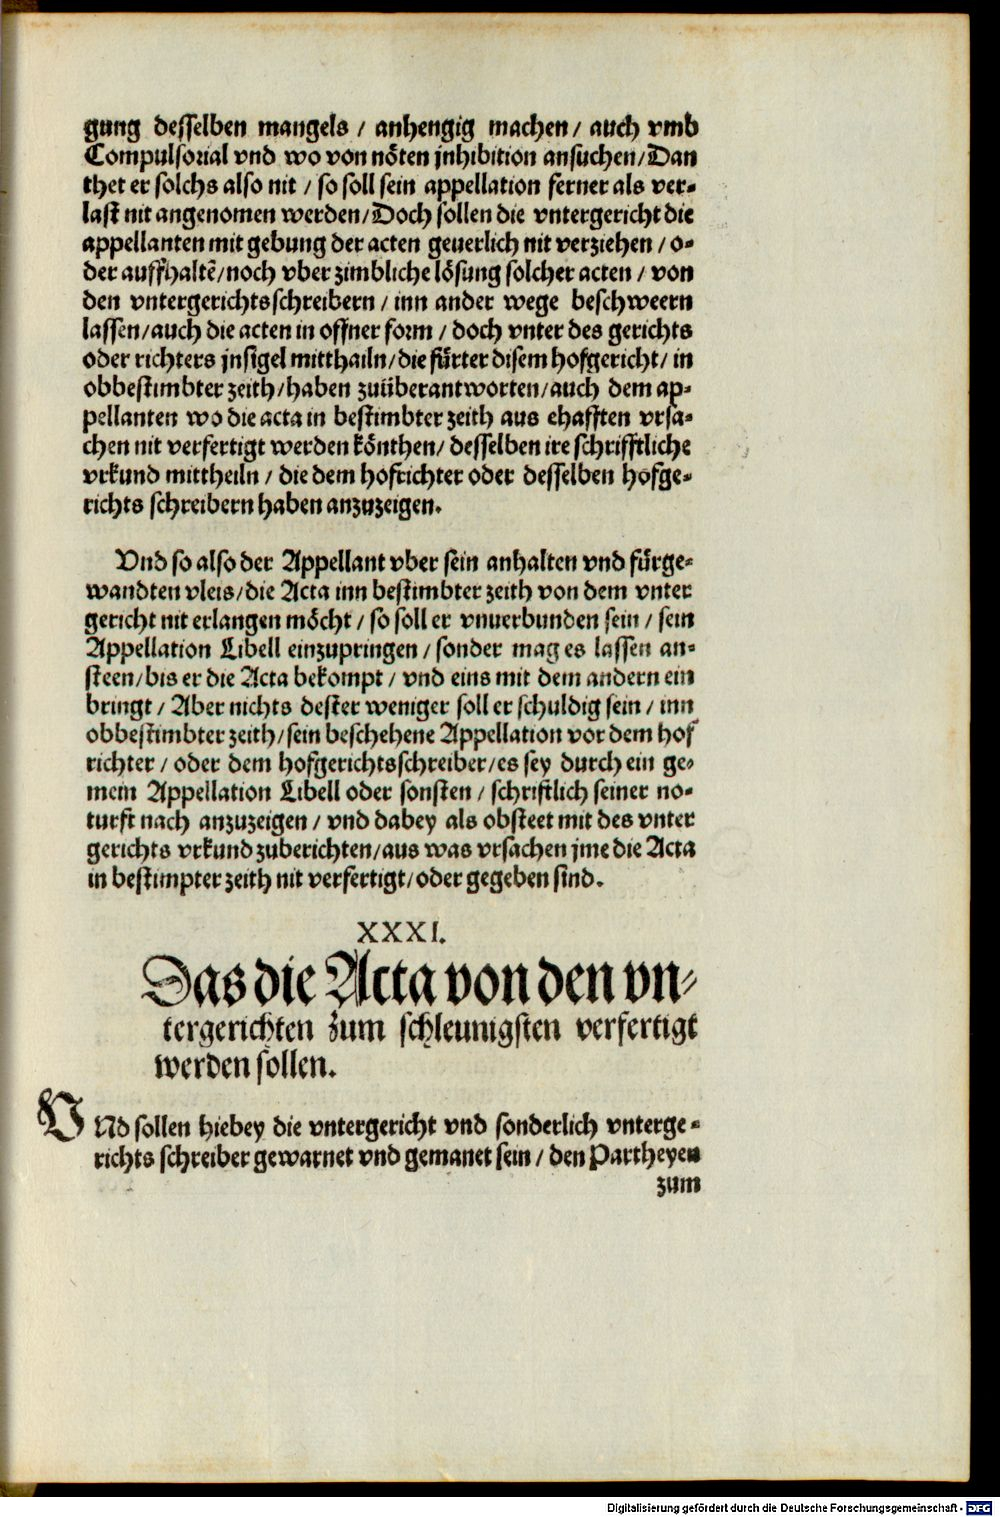 gung desselben mangels / anhengig machen / auch vmb
Compulsorial vnd wo von nöten jnhibition ansuchen / Dan
thet er solchs also nit / so soll sein appellation ferner als ver-
last nit angenomen werden / Doch sollen die vntergericht die
appellanten mit gebung der acten geuerlich nit verziehen / o-
der auffhaltē / noch vber zimbliche lösung solcher acten / von
den vntergerichtsschreibern / inn ander wege beschweern
lassen / auch die acten in offner form / doch vnter des gerichts
oder richters jnsigel mitthailn / die fürter disem hofgericht / in
obbestimbter zeith / haben zuüberantworten / auch dem ap-
pellanten wo die acta in bestimbter zeith aus ehafften vrsa-
chen nit verfertigt werden könthen / desselben ire schrifftliche
vrkund mittheiln / die dem hofrichter oder desselben hofge-
richts schreibern haben anzuzeigen.
Vnd so also der Appellant vber sein anhalten vnd fürge-
wandten vleis / die Acta inn bestimbter zeith von dem vnter
gericht nit erlangen möcht / so soll er vnuerbunden sein / sein
Appellation Libell einzupringen / sonder mag es lassen an-
steen / bis er die Acta bekompt / vnd eins mit dem andern ein
bringt / Aber nichts dester weniger soll er schuldig sein / inn
obbestimbter zeith / sein beschehene Appellation vor dem hof
richter / oder dem hofgerichtsschreiber / es sey durch ein ge-
mein Appellation Libell oder sonsten / schriftlich seiner no-
turft nach anzuzeigen / vnd dabey als obsteet mit des vnter
gerichts vrkund zuberichten / aus was vrsachen jme die Acta
in bestimpter zeith nit verfertigt / oder gegeben sind.
XXXI.
Das die Acta von den vn-
tergerichten zum schleunigsten verfertigt
werden sollen.
VNd sollen hiebey die vntergericht vnd sonderlich vnterge-
richts schreiber gewarnet vnd gemanet sein / den Partheyen
zum
Digitalisierung gefördert durch die Deutsche Forschungsgemeinschaft - DFG